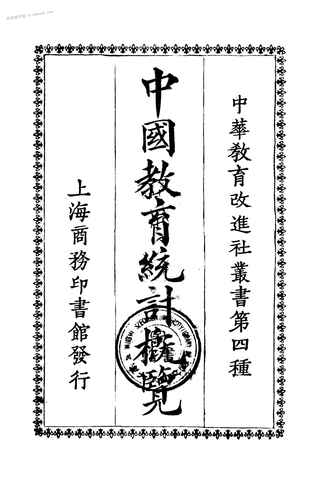 中華教育改進社叢書第四種
中國教育統計概覽
上海商務印書館發行